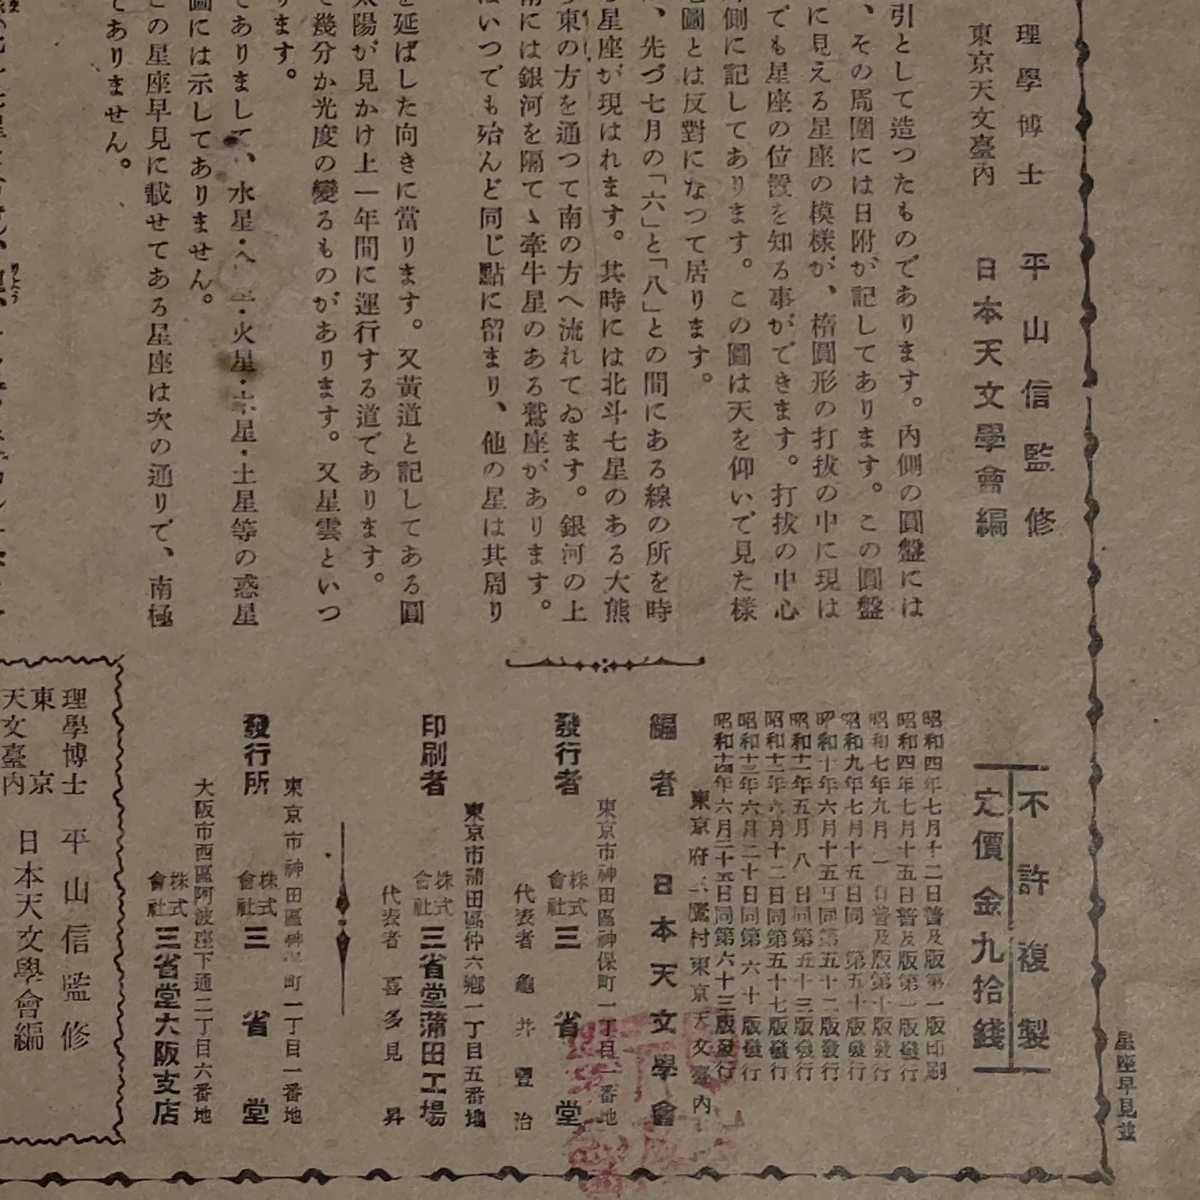 理學博士 平山信監修
東京天文臺內 日本天文學會編
引として造つたものであります。內側の圓盤には
、その周圍には日附が記してあります。この圓盤
に見える星座の模樣が、楕圓形の打拔の中に現は
でも星座の位置を知る事ができます。打拔の中心
側に記してあります。この圖は天を仰いで見た樣
圖とは反對になつて居ります。
、先づ七月の「六」と「八」との間にある線の所を時
星座が現はれます。其時には北斗七星のある大熊
東の方を通つて南の方へ流れてゐます。銀河の上
南には銀河を隔てゝ牽牛星のある鷲座があります。
はいつでも殆んど同じ點に留まり、他の星は其周り
を延ばした向きに當ります。又黃道と記してある圓
太陽が見かけ上一年間に運行する道であります。
て幾分か光度の變るものがあります。又星雲といつ
ります。
でありまして、水星・火星・木星・土星等の惑星
圖には示してありません。
この星座早見に載せてある星座は次の通りで、南極
でありません。
不許複製
定價金九拾錢
昭和四年七月十二日普及版第一版印刷
昭和四年七月十五日普及版第一版發行
昭和七年九月一日普及版第十版發行
昭和九年七月十五日同第五十版發行
昭和十年六月十五日同第五十二版發行
昭和十一年五月八日同第五十三版發行
昭和十二年六月十二日同第五十七版發行
昭和十三年六月二十日同第六十版發行
昭和十四年六月二十五日同第六十三版發行
東京府三鷹村東京天文臺內
編者 日本天文學會
東京市神田區神保町一丁目一番地
發行者 株式會社三省堂
代表者 龜井豐治
東京市蒲田區仲六鄉一丁目五番地
印刷者 株式會社三省堂蒲田工場
代表者 喜多見昇
東京市神田區神保町一丁目一番地
發行所 株式會社三省堂
大阪市西區阿波座下通二丁目六番地
株式會社三省堂大阪支店
理學博士 平山信監修
東京天文臺內 日本天文學會編
星座早見並